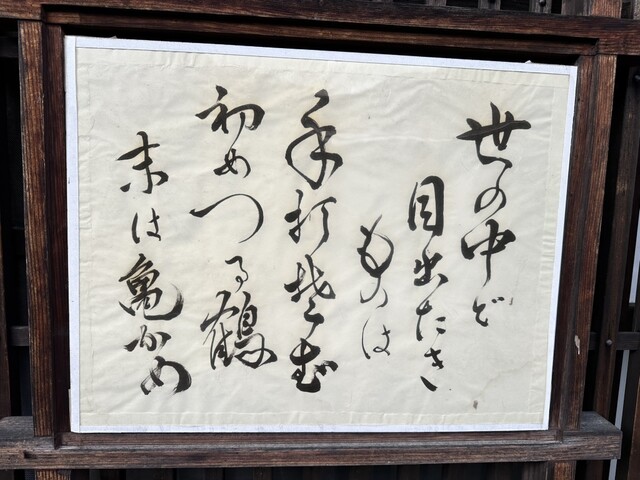 世の中で
目出たき
ものは
手打楚ば
初めつる鶴
末は亀かめ